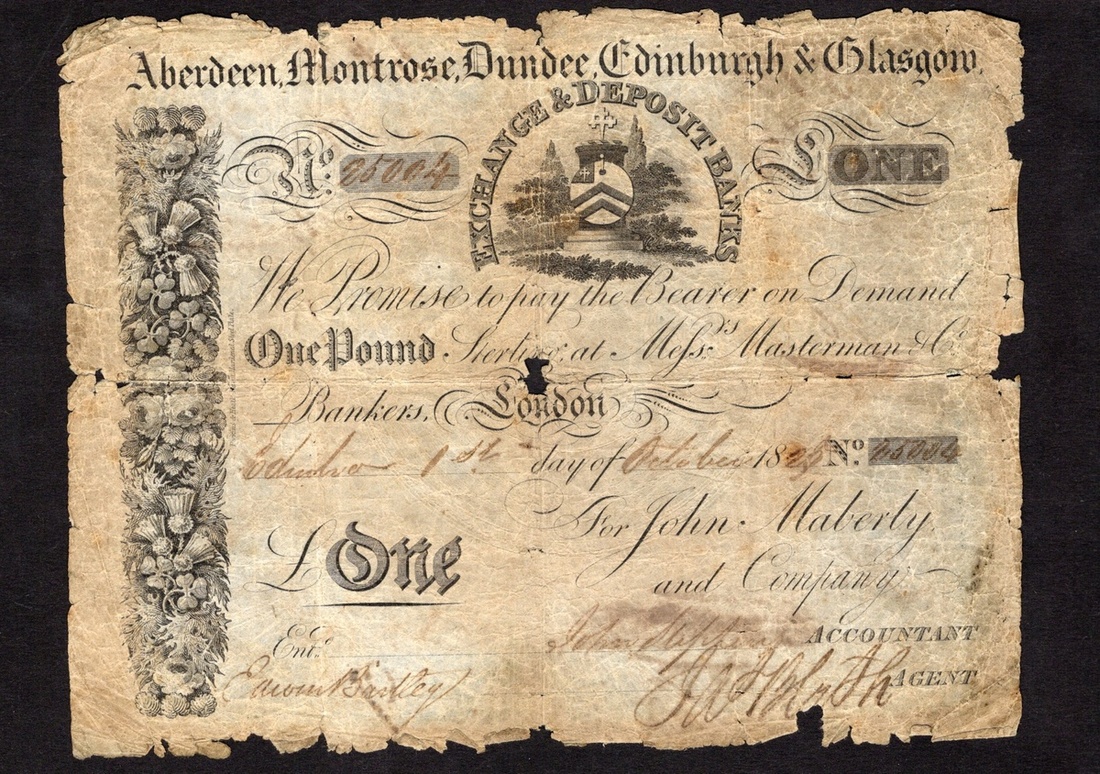 Aberdeen, Montrose, Dundee, Edinburgh & Glasgow.
EXCHANGE & DEPOSIT BANKS
No. 25004 £ONE
We Promise to pay the Bearer on Demand
One Pound Sterling at Messrs Masterman & Co
Bankers, London
Edinbro 1st day of October 18 No. 25004
For John Maberly
and Company
£ One
John ACCOUNTANT
Entd.
Edwin Bartley AGENT